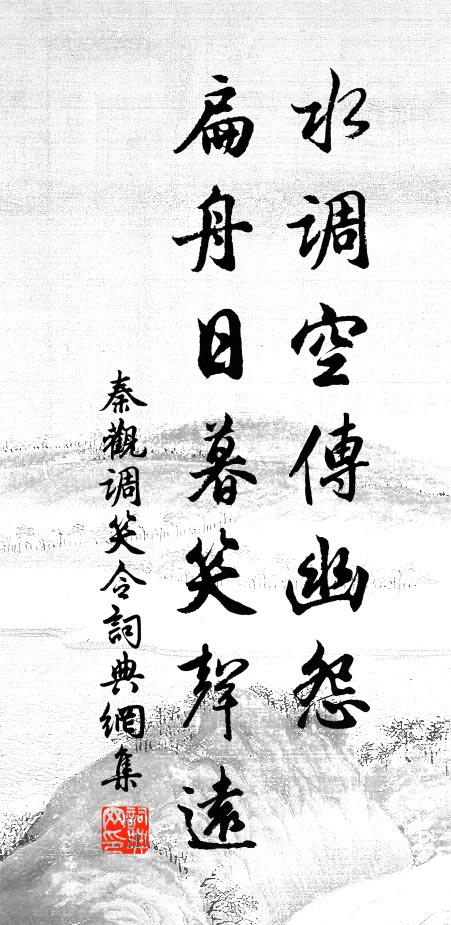 水調空傳幽怨
扁舟日暮笑聲遠
秦觀調笑令詞典網集